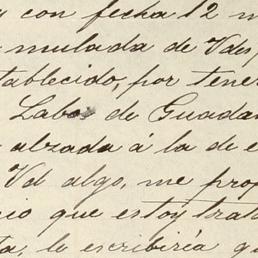 y con fecha 12 m
mulada de Vdes,
tablecido, por tener
Labo de Guadar
alzada á la de e
Vd algo, me prop
cio que estoy trata
ta, le escribiría q